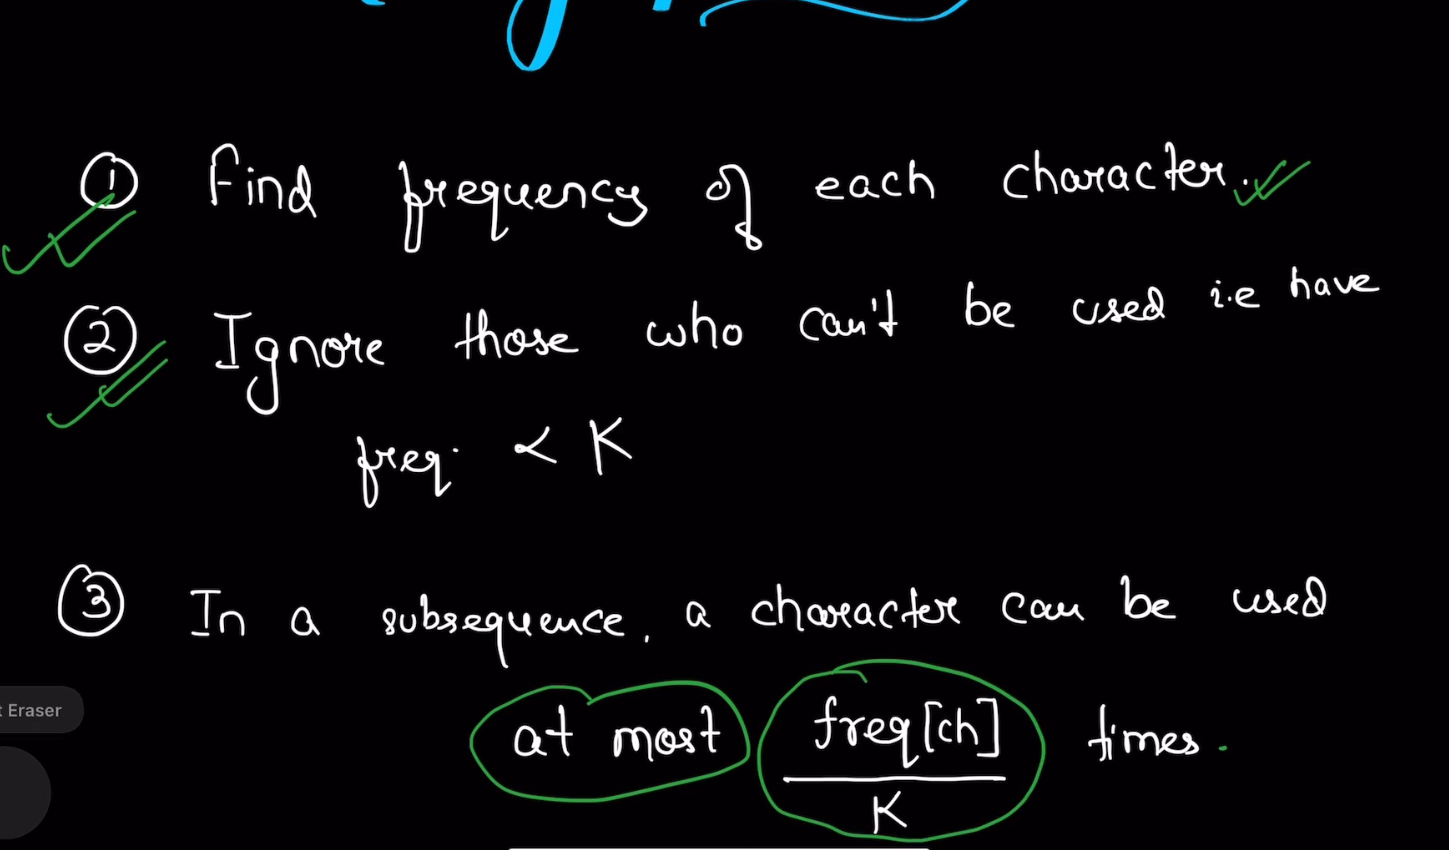 ① Find frequency of each character.
② Ignore those who can't be used i.e have
freq. < K
③ In a subsequence, a character can be used
at most freq[ch] / K times.
Eraser